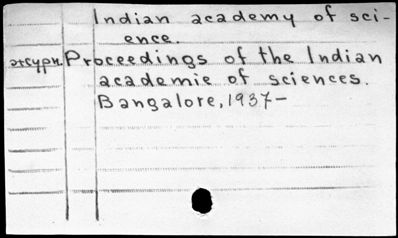 Indian academy of sci-
ence.
Proceedings of the Indian
academie of sciences.
Bangalore, 1937-